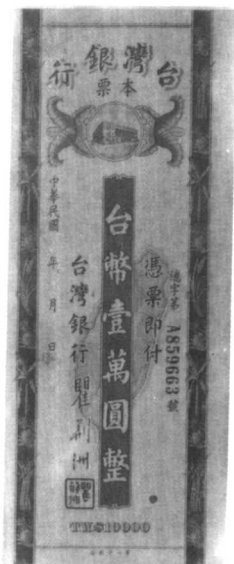 台灣銀行
本票
總字第 A859663 號
憑票即付
台幣壹萬圓整
台灣銀行 瞿荊洲
中華民國 年 月 日
TM$10000